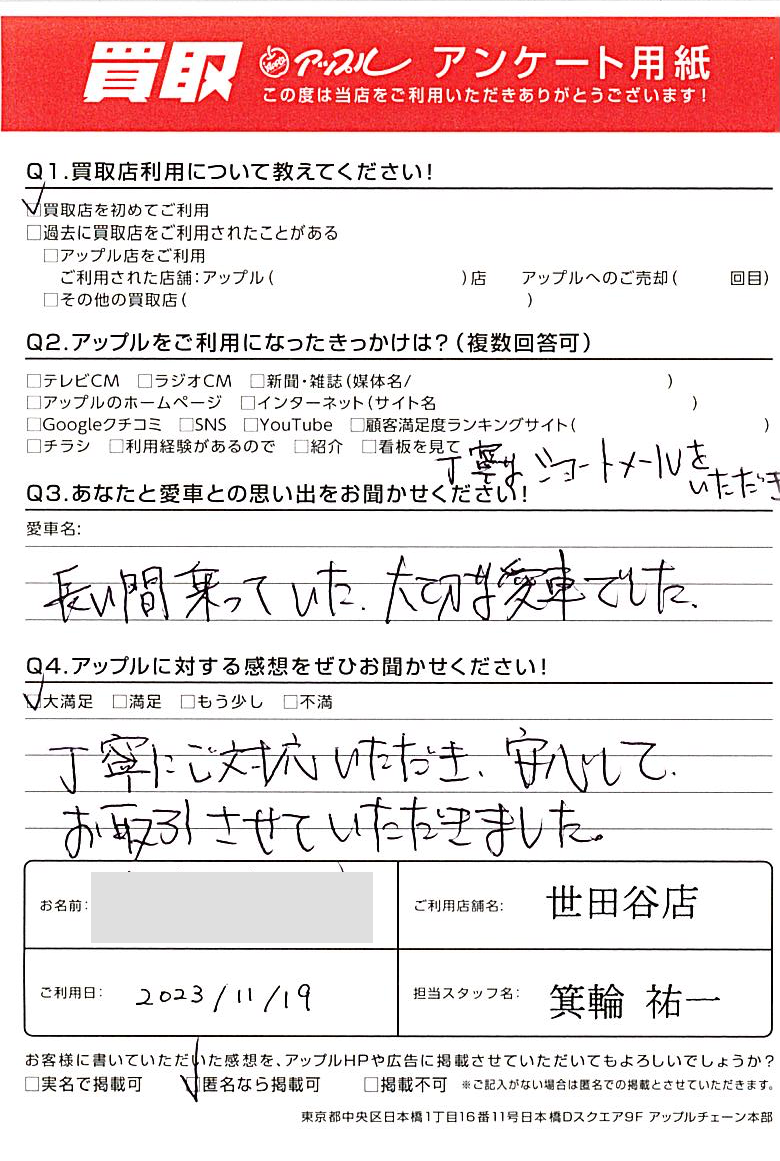 買取 アップル アンケート用紙
この度は当店をご利用いただきありがとうございます!
Q1.買取店利用について教えてください!
□買取店を初めてご利用
□過去に買取店をご利用されたことがある
□アップル店をご利用
ご利用された店舗:アップル( )店 アップルへのご売却( 回目)
□その他の買取店( )
Q2.アップルをご利用になったきっかけは?(複数回答可)
□テレビCM □ラジオCM □新聞・雑誌(媒体名/ )
□アップルのホームページ □インターネット(サイト名 )
□Googleクチコミ □SNS □YouTube □顧客満足度ランキングサイト( )
□チラシ □利用経験があるので □紹介 □看板を見て
丁寧なショートメールを
いただき
Q3.あなたと愛車との思い出をお聞かせください!
愛車名:
長い間乗っていた、大切な愛車でした。
Q4.アップルに対する感想をぜひお聞かせください!
□大満足 □満足 □もう少し □不満
丁寧にご対応いただき、安心して、
お取引させていただきました。
お名前:
ご利用店舗名: 世田谷店
ご利用日: 2023/11/19
担当スタッフ名: 箕輪 祐一
お客様に書いていただいた感想を、アップルHPや広告に掲載させていただいてもよろしいでしょうか?
□実名で掲載可 □匿名なら掲載可 □掲載不可 ※ご記入がない場合は匿名での掲載とさせていただきます。
東京都中央区日本橋1丁目16番11号日本橋Dスクエア9F アップルチェーン本部